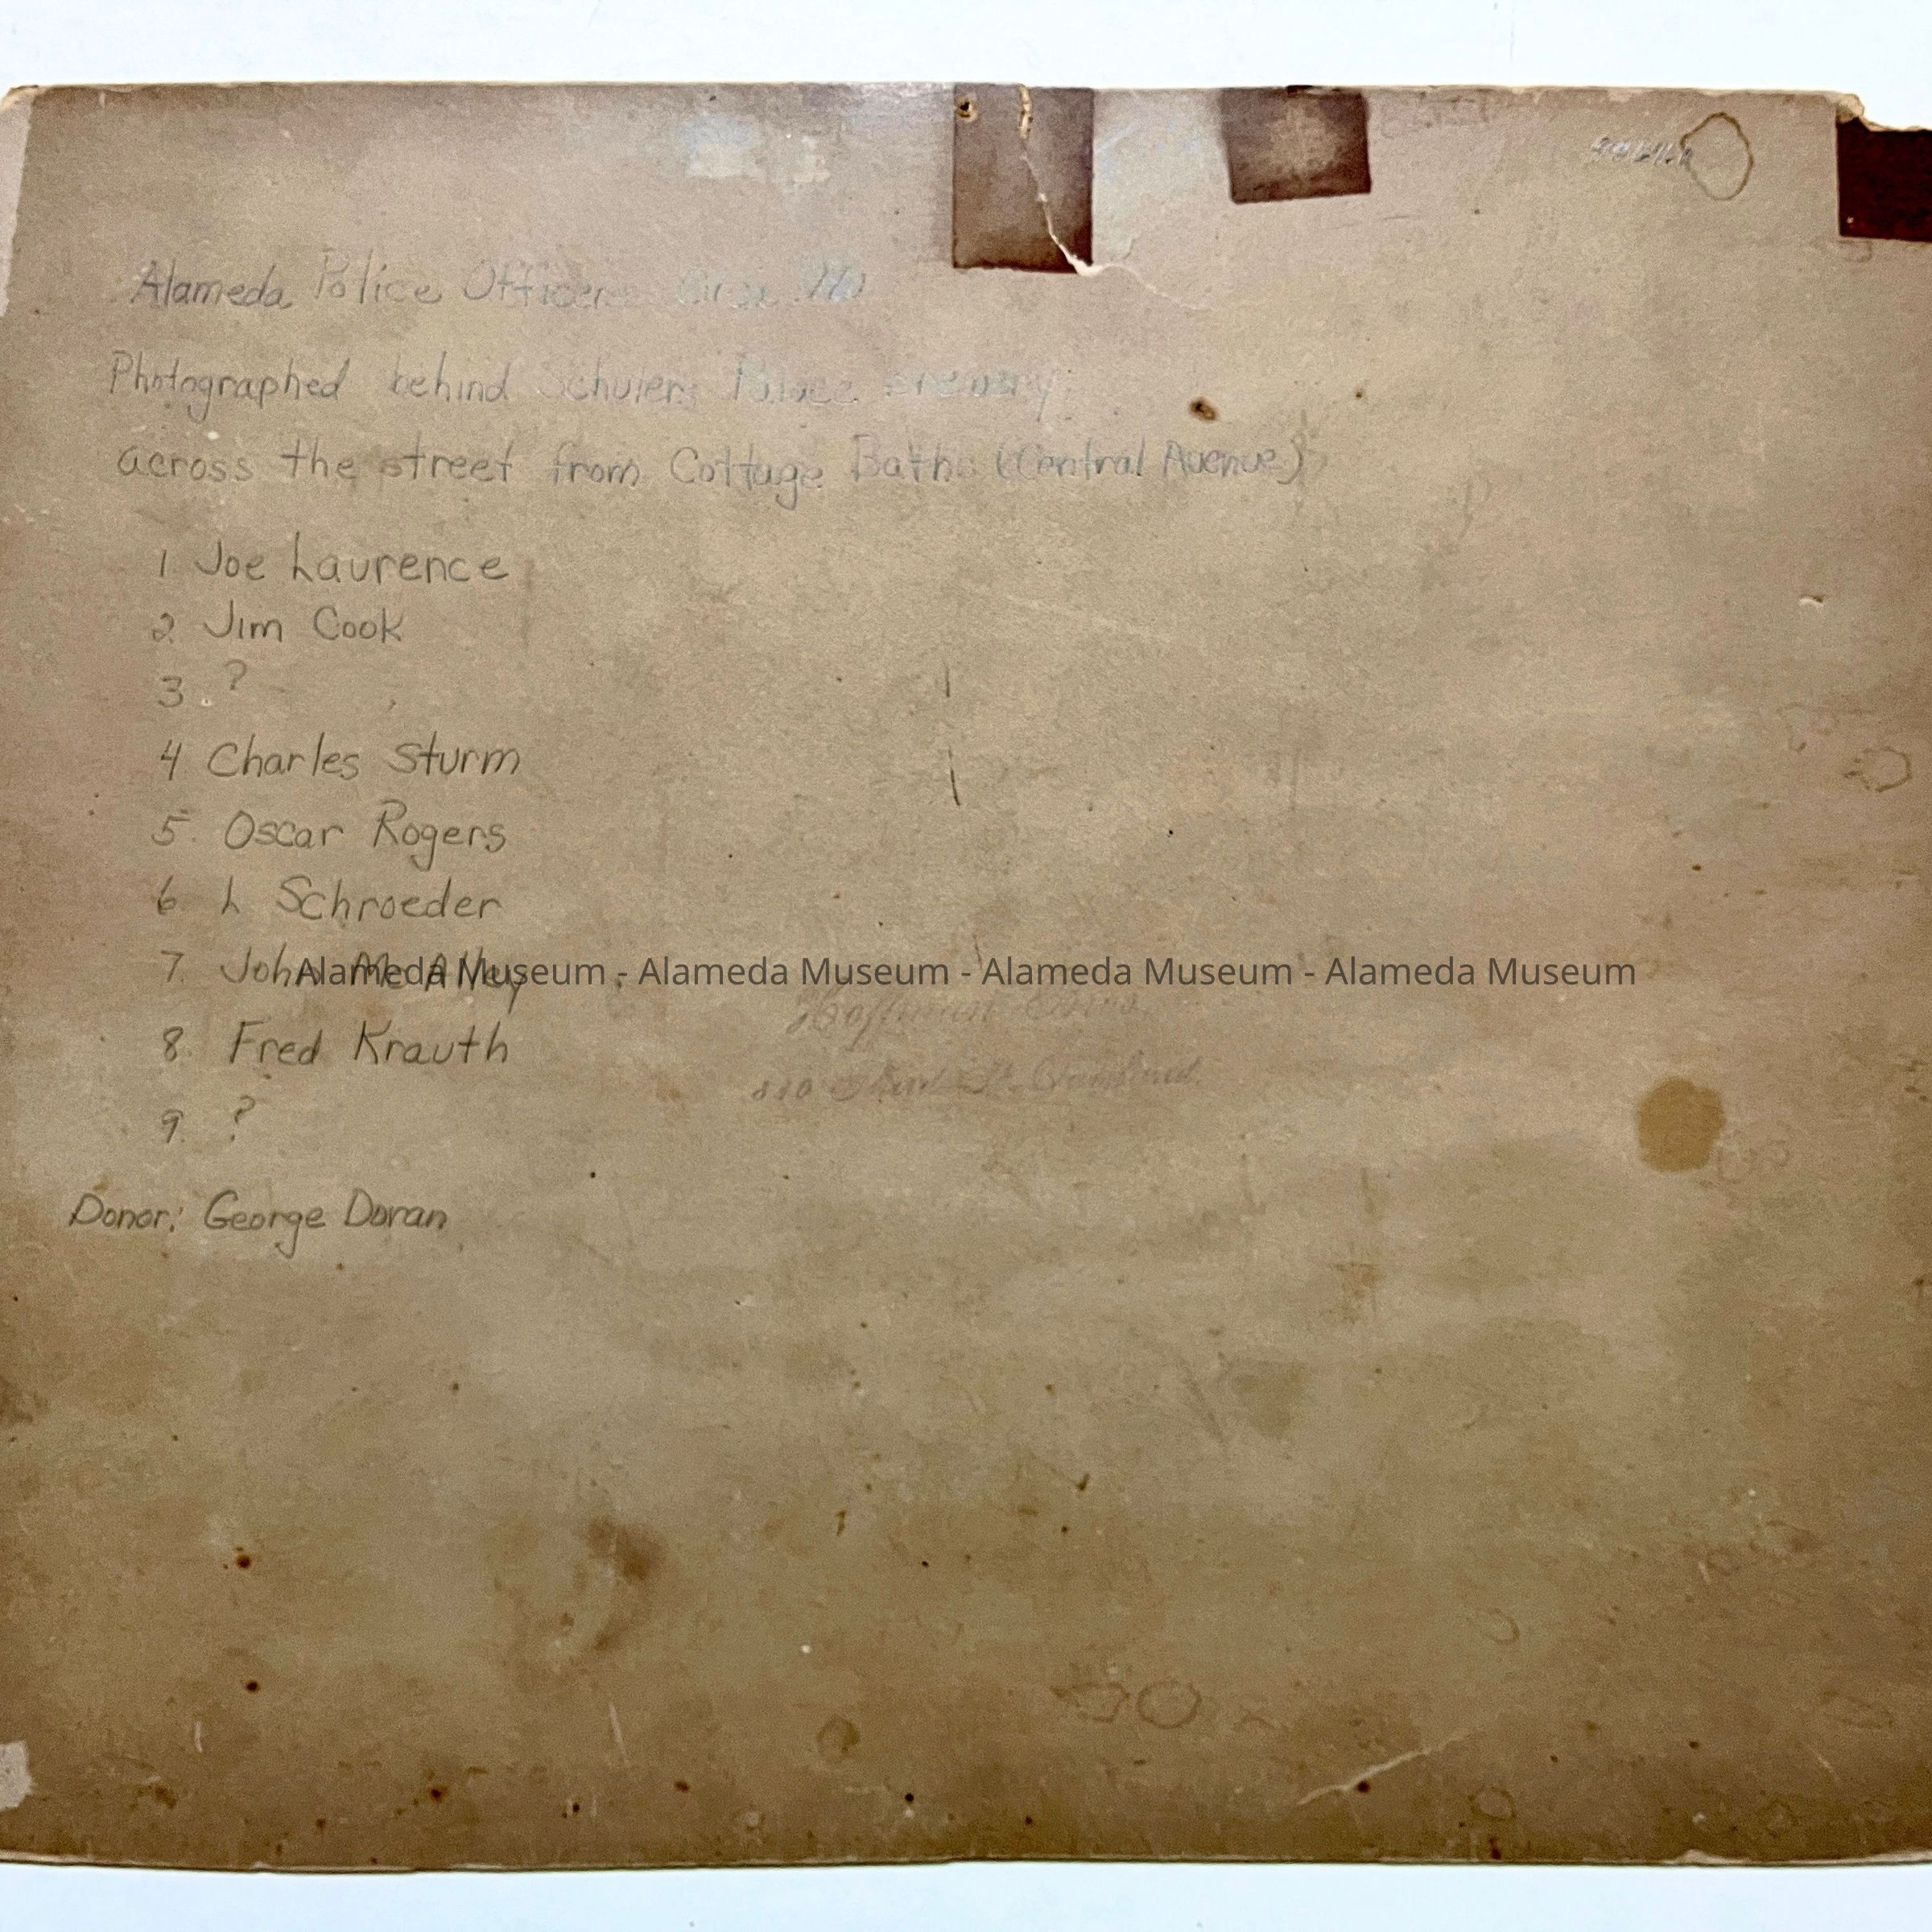 Alameda Police Officers Circa
Photographed behind Schuler's Palace
across the street from Cottage Baths (Central Avenue)
1 Joe Laurence
2. Jim Cook
3. ?
4 Charles Sturm
5. Oscar Rogers
6. L Schroeder
7. John McAlley
Alameda Museum - Alameda Museum - Alameda Museum - Alameda Museum
8. Fred Krauth
9. ?
Donor: George Doran